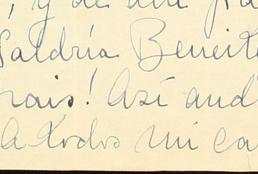 , y de ahí
Saldría Beneite
rais! Así and
A todos mi ca